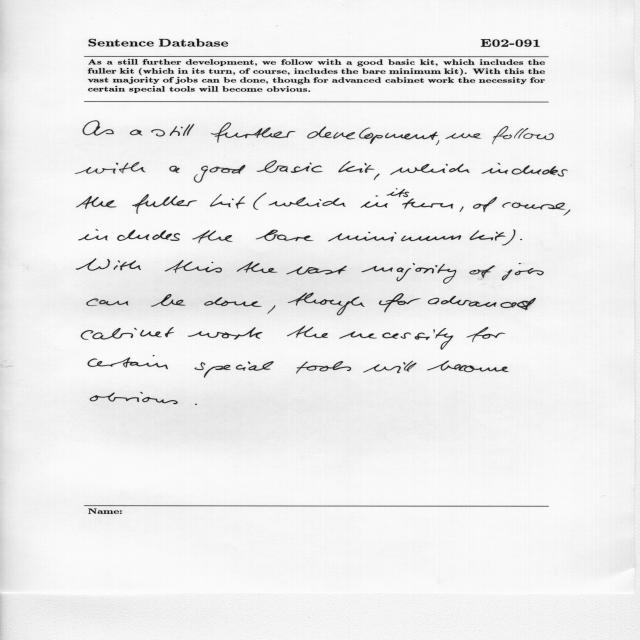 Sentence Database E02-091
As a still further development, we follow with a good basic kit, which includes the
fuller kit (which in its turn, of course, includes the bare minimum kit). With this the
vast majority of jobs can be done, though for advanced cabinet work the necessity for
certain special tools will become obvious.
As a still further development, we follow
with a good basic kit, which includes
the fuller kit (which in its turn, of course,
includes the bare minimum kit).
With this the vast majority of jobs
can be done, though for advanced
cabinet work the necessity for
certain special tools will become
obvious.
Name: